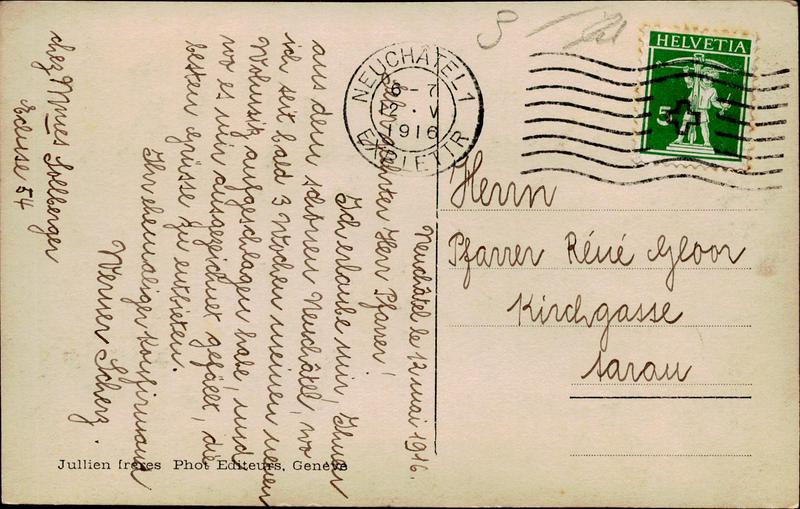 Neuchâtel le 12 mai 1916.
Sehr geehrter Herr Pfarrer!
Ich erlaube mir, Ihnen
aus dem schönen Neuchâtel, wo
ich seit bald 3 Wochen meinen neuen
Wohnsitz aufgeschlagen habe, und
wo es mir ausgezeichnet gefällt, die
besten Grüsse zu entbieten.
Ihr ehemaliger Konfirmand
Werner Scherz.
chez Mmes Sollberger
Ecluse 54
Jullien frères Phot Editeurs, Genève
NEUCHÂTEL 1
6-7
12. V.
1916
EXP. LETTR
HELVETIA
5
Herrn
Pfarrer Réné Gloor
Kirchgasse
Aarau